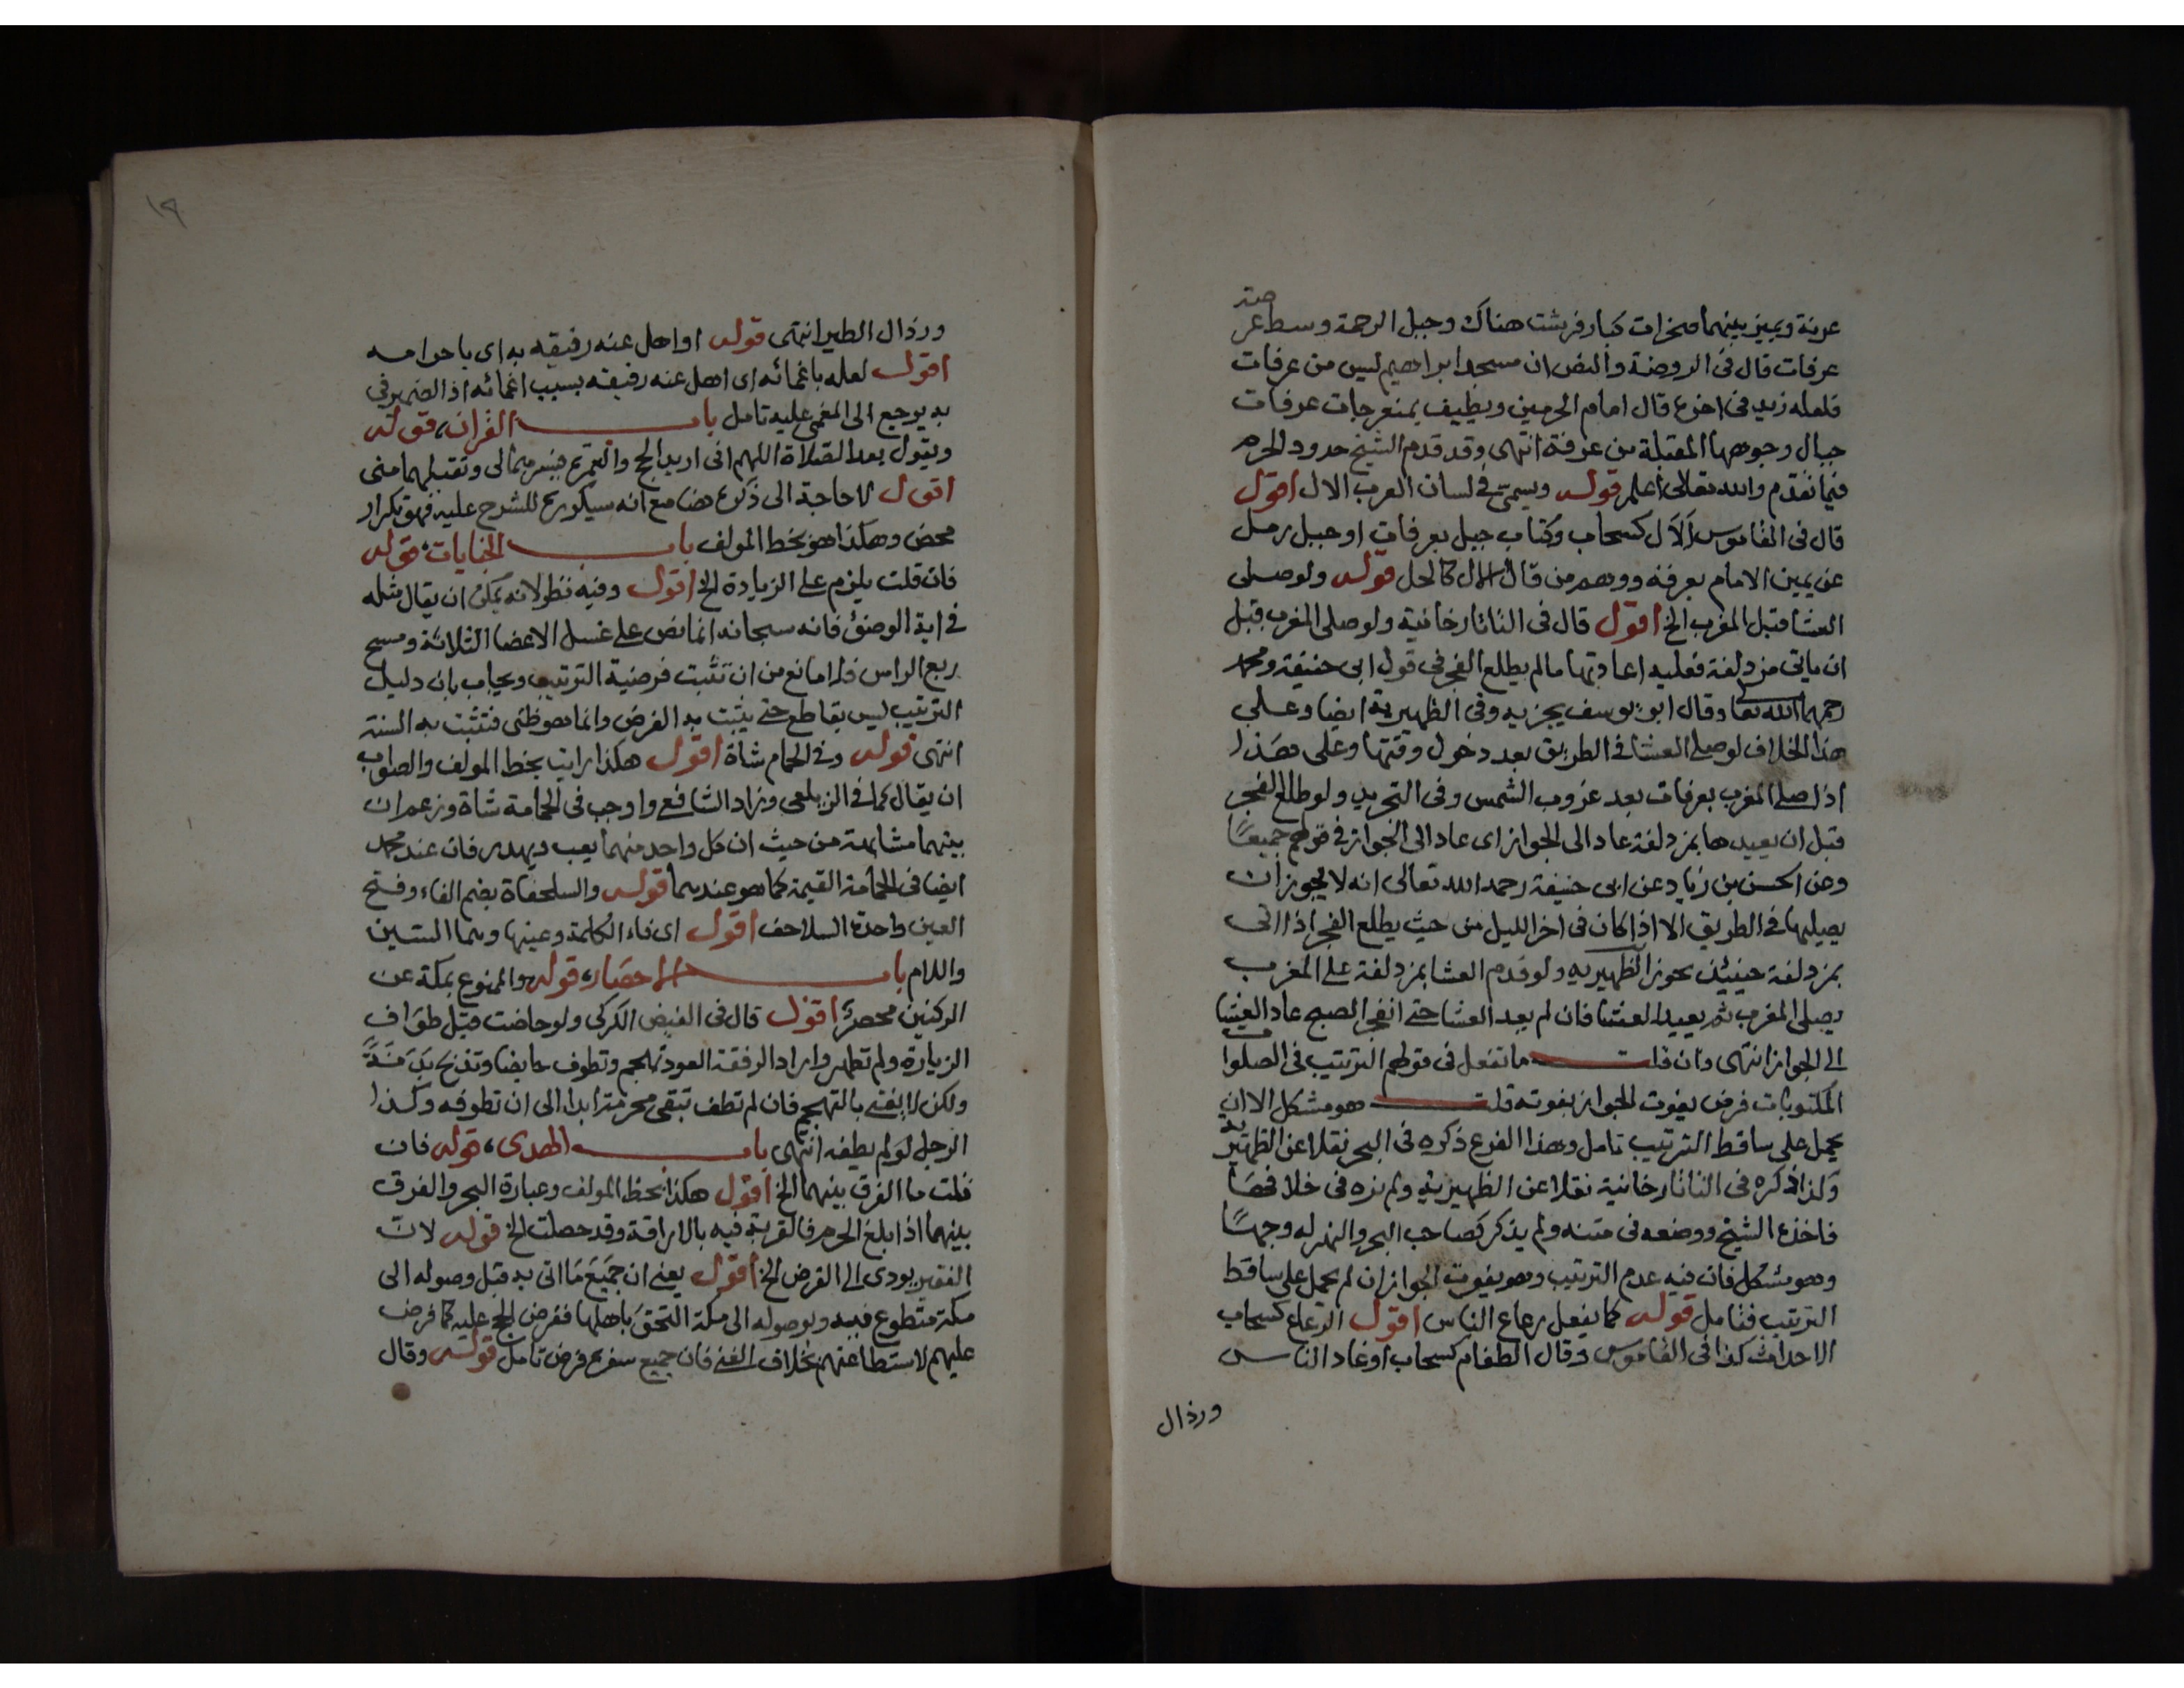 عرنة ويميز بينهما صخرات كبار فرشت هناك وجبل الرحمة وسط عرصة
عرفات قال في الروضة والنص ان مسجد ابراهيم ليس من عرفات
فلعله زيد في اخره قال امام الحرمين ويطيف بمنعرجات عرفات
جبال وجوهها المقبلة من عرفة انتهى وقد قدم الشيخ حدود الحرم
فيما تقدم والله تعالى اعلم قوله ويسمى في لسان العرب الال اقول
قال في القاموس ألال كسحاب وكتاب جبل بعرفات او جبل رمل
عن يمين الامام بعرفة ووهم من قال الال كالحل قوله ولو صلى
العشا قبل المغرب الخ اقول قال في التاتارخانية ولو صلى المغرب قبل
ان ياتي مزدلفة فعليه اعادتها ما لم يطلع الفجر في قول ابي حنيفة ومحمد
رحمهما الله تعا وقال ابو يوسف يجزيه وفي الظهيرية ايضا وعلى
هذا الخلاف لو صلى العشا في الطريق بعد دخول وقتها وعلى هذا
اذا صلى المغرب بعرفات بعد غروب الشمس وفي التجريد ولو طلع الفجر
قبل ان يعيدها بمزدلفة عاد الى الجواز اى عاد الى الجواز في قولهم جميعًا
وعن الحسن بن زياد عن ابى حنيفة رحمه الله تعالى انه لا يجوز ان
يصليها في الطريق الا اذا كان في اخر الليل من حيث يطلع الفجر اذا اتى
بمزدلفة حينئذ يجوز الظهيريه ولو قدم العشا بمزدلفة على المغرب
يصلي المغرب ثم يعيد العشا فان لم يعد العشا حتى انفجر الصبح عاد العشا
الى الجواز انتهى وان قلت ما تفعل في قولهم الترتيب في الصلوات
المكتوبات فرض يفوت الجواز بفوته قلت هو مشكل الا ان
يحمل على ساقط الترتيب تامل وهذا الفرع ذكره في البحر نقلا عن الظهيرية
وكذا ذكره في التاتارخانية نقلا عن الظهيرية ولم نره في خلافهما
فاخذه الشيخ ووضعه في متنه ولم يذكر كصاحب البحر والنهر له وجهًا
وهو مشكل فان فيه عدم الترتيب وهو يفوت الجواز ان لم يحمل على ساقط
الترتيب فتامل قوله كما يفعل رعاع الناس اقول الرعاع كسحاب
الاحداث كذا في القاموس وقال الطغام كسحاب اوغاد الناس
ورذال
١٩
ورذال الطير انتهى قوله او اهل عنه رفيقه به اى باحرامه
اقول لعله باغمائه اى اهل عنه رفيقه بسبب اغمائه اذ الضمير في
به يرجع الى المغمى عليه تامل باب القران، قوله
ويقول بعد الصلاة اللهم انى اريد الحج والعمرة فيسرهما لى وتقبلهما منى
اقول لا حاجة الى ذكره هنا مع انه سيكرره للشرح عليه فهو تكرار
محض وهكذا هو بخط المولف باب الجنايات، قوله
فان قلت يلزم على الزيادة الخ اقول وفيه نظر لانه يمكن ان يقال مثله
في اية الوضؤ فانه سبحانه انما نص على غسل الاعضا الثلاثة ومسح
ربع الراس فلا مانع من ان تثبت فرضية الترتيب ويجاب بان دليل
الترتيب ليس بقاطع حتى يثبت به الفرض وانما هو ظنى فتثبت به السنة
انتهى قوله وفي الحمام شاة اقول هكذا رايت بخط المولف والصواب
ان يقال كما في الزيلعي وزاد الشافعى واوجب في الحمامة شاة وزعم ان
بينهما مشابهة من حيث ان كل واحد منهما يعب ويهدر فان عند محمد
ايضا في الحمامة القيمة كما هو عندهما قوله والسلحفاة بضم الفاء وفتح
العين واحدة السلاحف اقول اى فاء الكلمة وعينها وهما السين
واللام باب الاحصار، قوله والممنوع بمكة عن
الركنين محصر اقول قال في الفيض الكركى ولو حاضت قبل طواف
الزيارة ولم تطهر واراد الرفقة العود تهجم وتطوف حايضا وتذبح بَدَنَةً
ولكن لا يفتى بالتهجم فان لم تطف تبقى محرمة ابدا الى ان تطوفه وكذا
الرجل لو لم يطفه انتهى باب الهدى، قوله فان
قلت ما الفرق بينهما الخ اقول هكذا بخط المولف وعبارة البحر والفرق
بينهما اذا بلغ الحرم فالقربة فيه بالاراقة وقد حصلت الخ قوله لان
الفقير يودى الى الفرض الخ اقول يعنى ان جميع ما اتى به قبل وصوله الى
مكة متطوع فيه وبوصوله الى مكة التحق باهلها ففرض الحج عليه كما فرض
عليهم لاستطاعتهم بخلاف الغنى فان جميع سفره فرض تامل قوله وقال